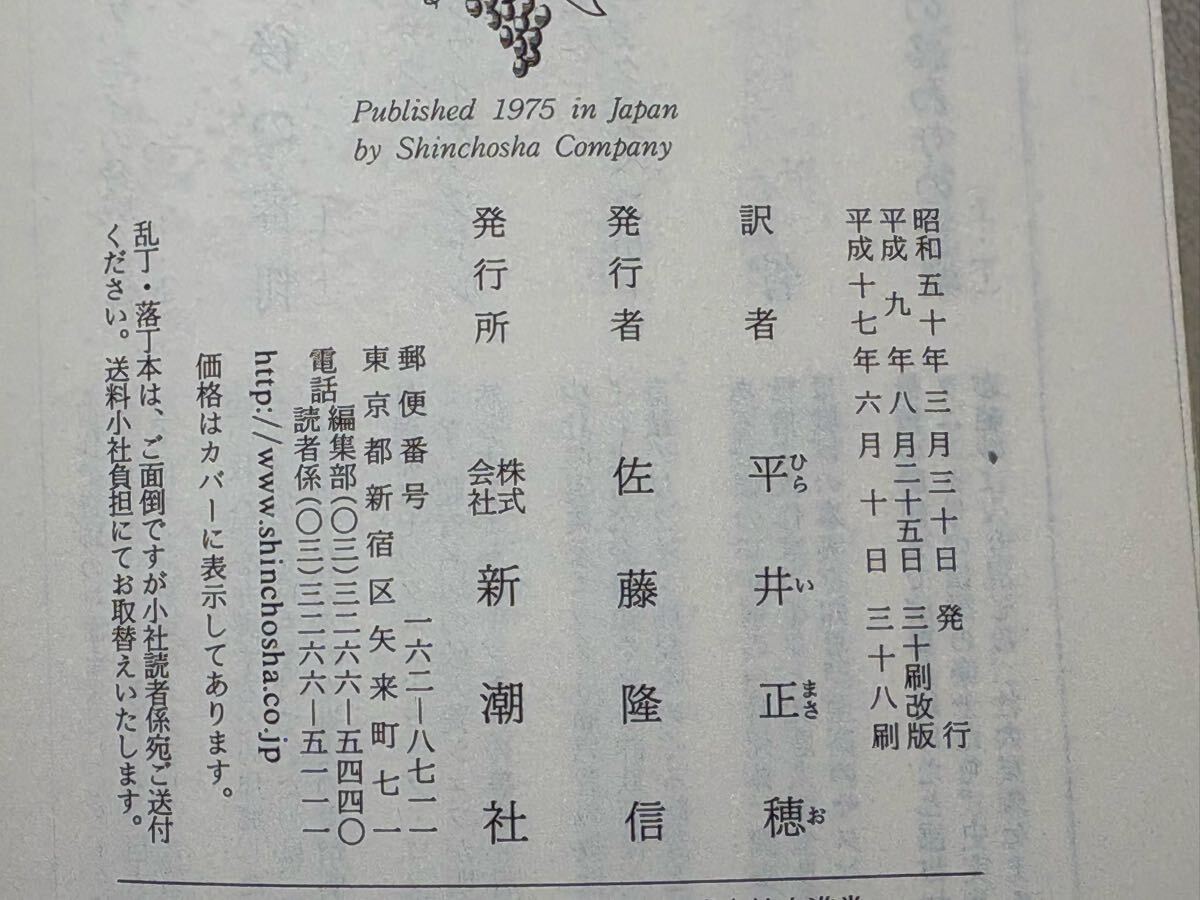 Published 1975 in Japan
by Shinchosha Company
昭和五十年三月三十日発行
平成九年八月二十五日三十刷改版
平成十七年六月十日三十八刷
訳者 平井正穂
ひらいまさお
発行者 佐藤隆信
発行所 株式会社 新潮社
郵便番号 一六二―八七一一
東京都新宿区矢来町七一
電話 編集部(〇三)三二六六―五四四〇
読者係(〇三)三二六六―五一一一
http://www.shinchosha.co.jp
価格はカバーに表示してあります。
乱丁・落丁本は、ご面倒ですが小社読者係宛ご送付
ください。送料小社負担にてお取替えいたします。